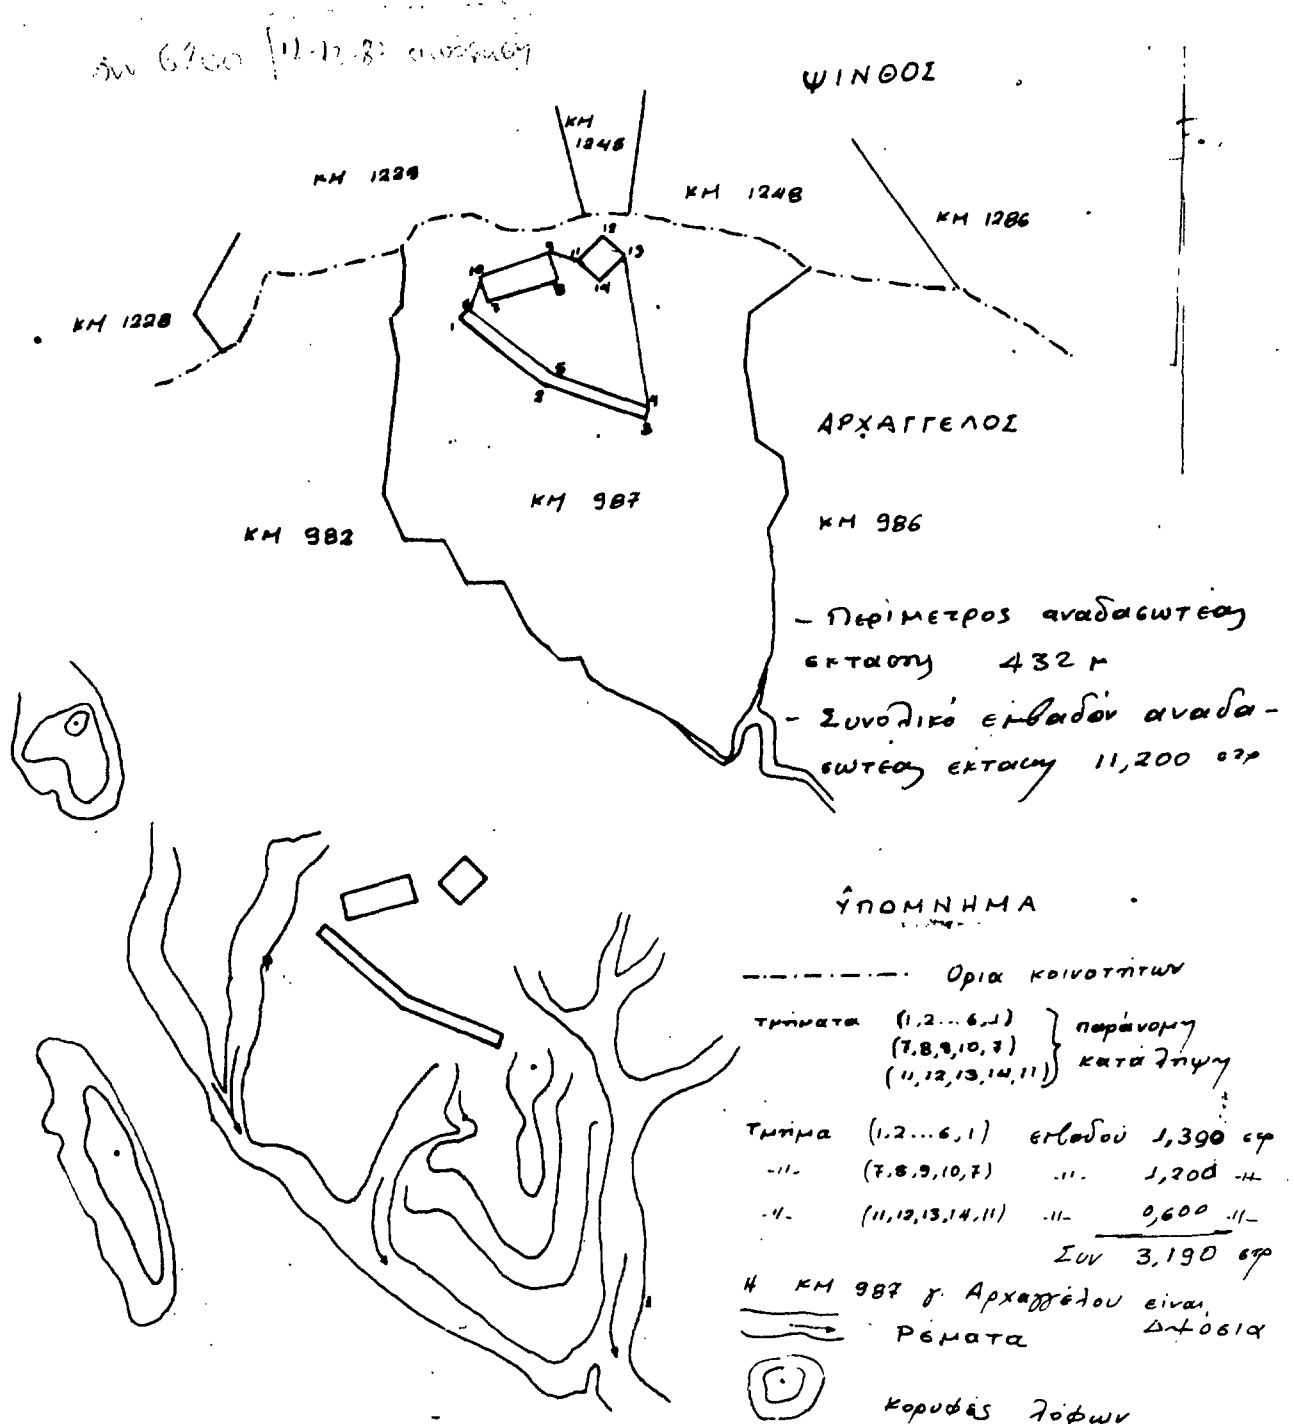 ΨΙΝΘΟΣ
ΚΜ
1245
ΚΜ 1229
ΚΜ 1248
ΚΜ 1286
ΚΜ 1228
12
9
11
13
10
14
8
7
6
1
5
2
4
3
ΑΡΧΑΓΓΕΛΟΣ
ΚΜ 987
ΚΜ 986
ΚΜ 982
- Περίμετρος αναδασωτέας
εκτασης 432 μ
- Συνολικό εμβαδόν αναδα-
σωτέας εκτασης 11,200 στρ
ΥΠΟΜΝΗΜΑ
Ορια κοινοτήτων
τμήματα (1,2...6,1)
(7,8,9,10,7)
(11,12,13,14,11)
παράνομη
κατάληψη
Τμήμα (1,2...6,1) εμβαδού 1,390 στρ
-//- (7,8,9,10,7) -//- 1,200 -//-
-//- (11,12,13,14,11) -//- 0,600 -//-
Συν 3,190 στρ
Η ΚΜ 987 γ. Αρχαγγέλου είναι
Δημόσια
Ρέματα
κορυφές λόφων